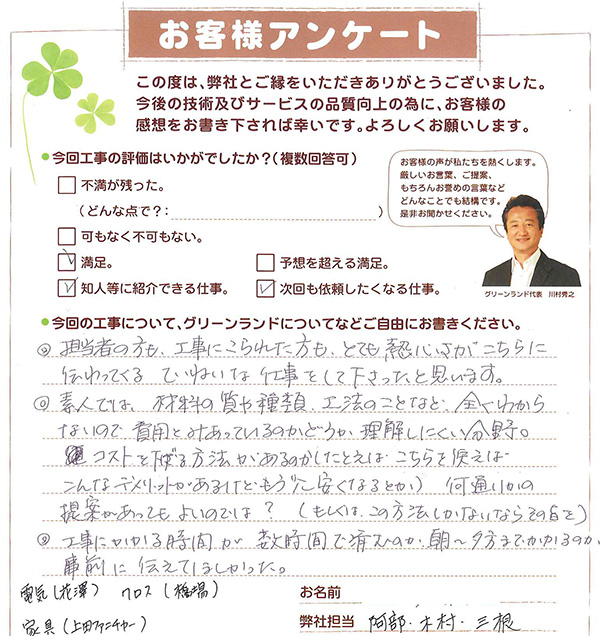 お客様アンケート
この度は、弊社とご縁をいただきありがとうございました。
今後の技術及びサービスの品質向上の為に、お客様の
感想をお書き下されば幸いです。よろしくお願いします。
●今回工事の評価はいかがでしたか?(複数回答可)
不満が残った。
(どんな点で?: )
可もなく不可もない。
満足。
予想を超える満足。
知人等に紹介できる仕事。
次回も依頼したくなる仕事。
お客様の声が私たちを熱くします。
厳しいお言葉、ご提案、
もちろんお誉めの言葉など
どんなことでも結構です。
是非お聞かせください。
グリーンランド代表 川村秀之
●今回の工事について、グリーンランドについてなどご自由にお書きください。
◎担当者の方も、工事にこられた方も、とても熱心さがこちらに
伝わってくる ていねいな仕事をして下さったと思います。
◎素人では、材料の質や種類、工法のことなど、全くわから
ないので 費用とみあっているのかどうか、理解しにくい分野。
コストを下げる方法があるのか(たとえば こちらを使えば
こんなデメリットがあるけど もう少し安くなるとか) 何通りかの
提案があってもよいのでは? (もしくは、この方法しかないならその旨を)
◎工事にかかる時間が 数時間で済むのか、朝〜夕方までかかるのか、
事前に伝えてほしかった。
電気(花澤) クロス(橋場)
家具(上田ファニチャー)
お名前
弊社担当 阿部・木村・三根